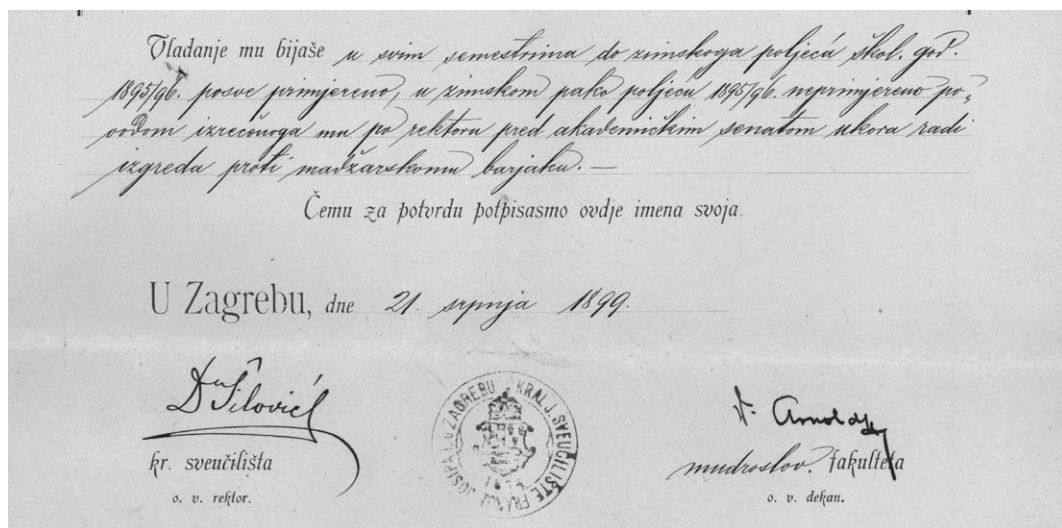 Vladanje mu bijaše u svim semestrima do zimskoga poljeća škol. god.
1895/96. posve primjereno, u zimskom pako poljeću 1895/96. neprimjereno po„
vodom izrečenoga mu po rektoru pred akademičkim senatom ukora radi
izgreda proti madžarskomu barjaku. —
Čemu za potvrdu potpisasmo ovdje imena svoja.
U Zagrebu, dne 21. srpnja 1899.
Dr Šilović
Dr. Arnold
kr. sveučilišta
mudroslov. fakulteta
o. v. rektor.
o. v. dekan.
KRALJ. SVEUČILIŠTE FRANJE JOSIPA I. U ZAGREBU
1874